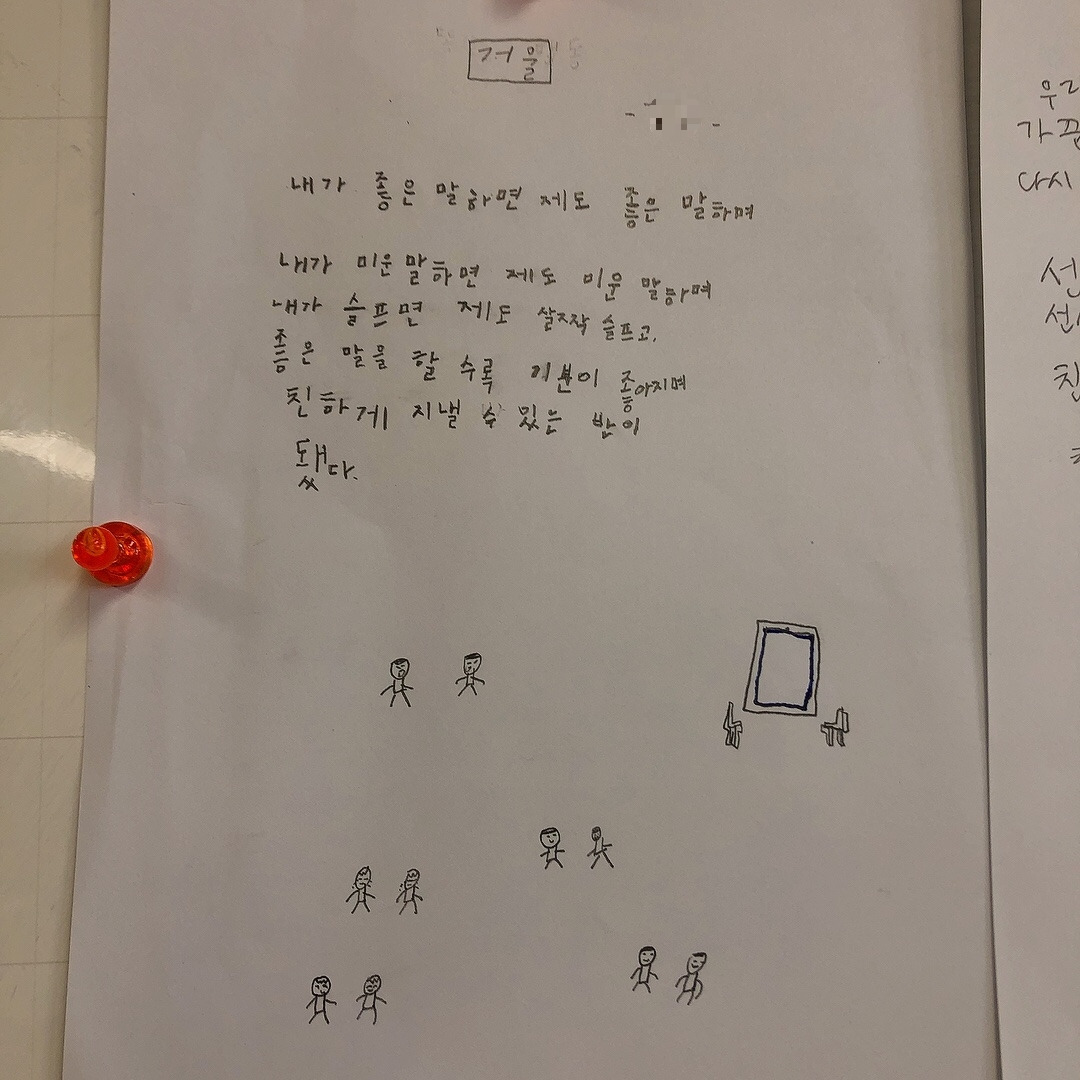 거울
내가 좋은 말하면 제도 좋은 말하며
내가 미운말하면 제도 미운 말하며
내가 슬프면 제도 살짝 슬프고,
좋은 말을 할 수록 기분이 좋아지며
친하게 지낼 수 있은 반이
됐다.
우리
가끔
다시
선
선
친